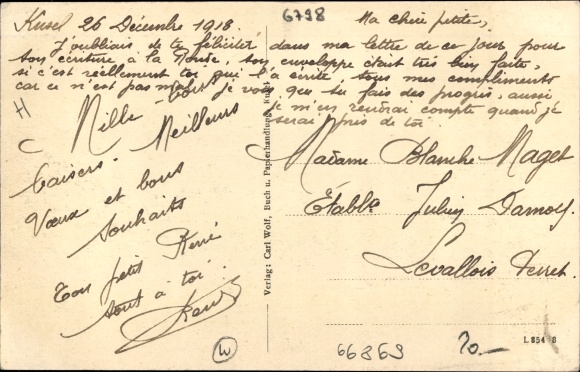 6798
Kusel 26 Décembre 1918. Ma chère petite,
J'oubliais de te féliciter dans ma lettre de ce jour pour
ton écriture à la Ronde, ton enveloppe était très bien faite,
si c'est réellement toi qui l'a écrite, tous mes compliments
car ce n'est pas mal, je vois que tu fais des progrès, aussi
je m'en rendrai compte quand je
serai près de toi.
H
Mille bons
Meilleurs
baisers.
Vœux et bons
souhaits
Ton petit René
tout à toi
René
Madame Blanche Maget
Établs Julien Damoy
Levallois Perret
Verlag: Carl Wolf, Buch u. Papierhandlung, Kusel
W
66869
20.—
L 854 8